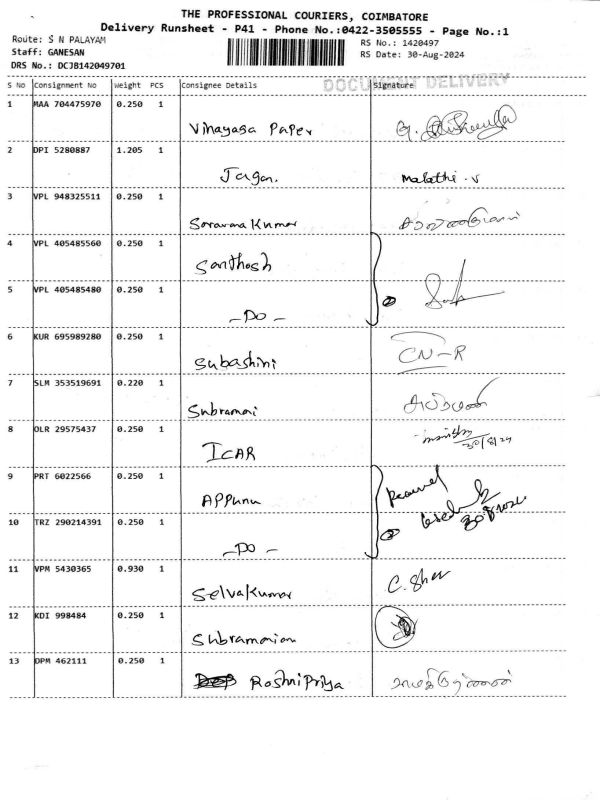 THE PROFESSIONAL COURIERS, COIMBATORE
Delivery Runsheet - P41 - Phone No.:0422-3505555 - Page No.:1
Route: S N PALAYAM
RS No.: 1420497
Staff: GANESAN
RS Date: 30-Aug-2024
DRS No.: DCJB142049701
DOCUMENT DELIVERY
S No Consignment No Weight PCS Consignee Details Signature
1 MAA 704475970 0.250 1
Vinayaga Paper
2 DPI 5280887 1.205 1
Jagan. Malathi. V
3 VPL 948325511 0.250 1
Saravana Kumar சரவணகுமார்
4 VPL 405485560 0.250 1
Santhosh
5 VPL 405485480 0.250 1
- DO - 2
6 KUR 695989280 0.250 1
Subashini CN-R
7 SLM 353519691 0.220 1
Subramani சுப்ரமணி
8 OLR 29575437 0.250 1
ICAR 30/8/24
9 PRT 6022566 0.250 1
Appunu
10 TRZ 290214391 0.250 1
- DO - 2
11 VPM 5430365 0.930 1
Selvakumar
12 KDI 998484 0.250 1
Subramanian
13 DPM 462111 0.250 1
Roshni Priya